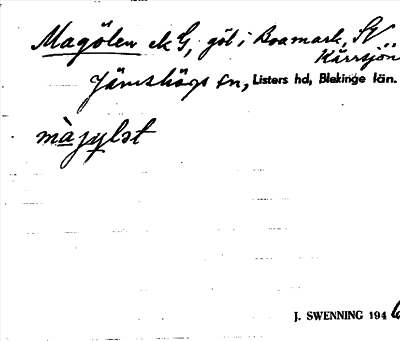 Magölen ek G, göl i Boamark, SV
Kärrsjön
Jämshögs sn, Listers hd, Blekinge län.
màjylət
J. SWENNING 1946